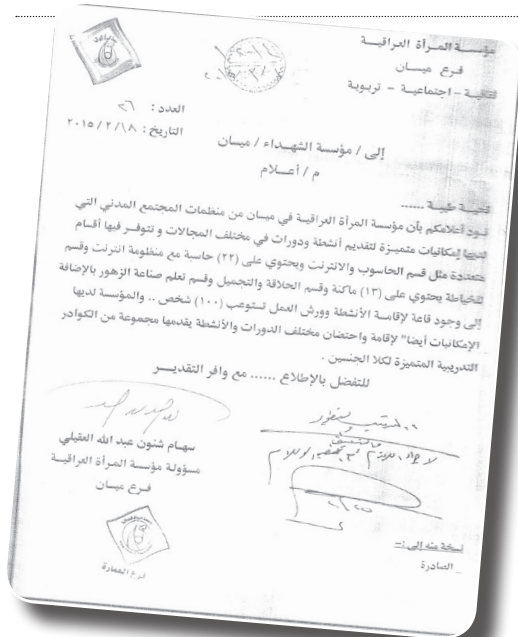 مؤسسة المرأة العراقية
فرع ميسان
ثقافية - اجتماعية - تربوية
العدد : ٢٦
التاريخ : ٢٠١٥/٢/١٨
إلى / مؤسسة الشهداء / ميسان
م / أعلام
تحية طيبة ......
نود أعلامكم بأن مؤسسة المرأة العراقية في ميسان من منظمات المجتمع المدني التي
لديها إمكانيات متميزة لتقديم أنشطة ودورات في مختلف المجالات و تتوفر فيها أقسام
متعددة مثل قسم الحاسوب والانترنت ويحتوي على (٢٢) حاسبة مع منظومة انترنت وقسم
للخياطة يحتوي على (١٣) ماكنة وقسم الحلاقة والتجميل وقسم تعلم صناعة الزهور بالإضافة
إلى وجود قاعة لإقامة الأنشطة وورش العمل تستوعب (١٠٠) شخص .. والمؤسسة لديها
الإمكانيات أيضا" لإقامة واحتضان مختلف الدورات والأنشطة يقدمها مجموعة من الكوادر
التدريبية المتميزة لكلا الجنسين .
للتفضل بالإطلاع ...... مع وافر التقدير
سهام شنون عبد الله العقيلي
مسؤولة مؤسسة المرأة العراقية
فرع ميسان
نسخة منه إلى :-
_ الصادرة
فرع العمارة